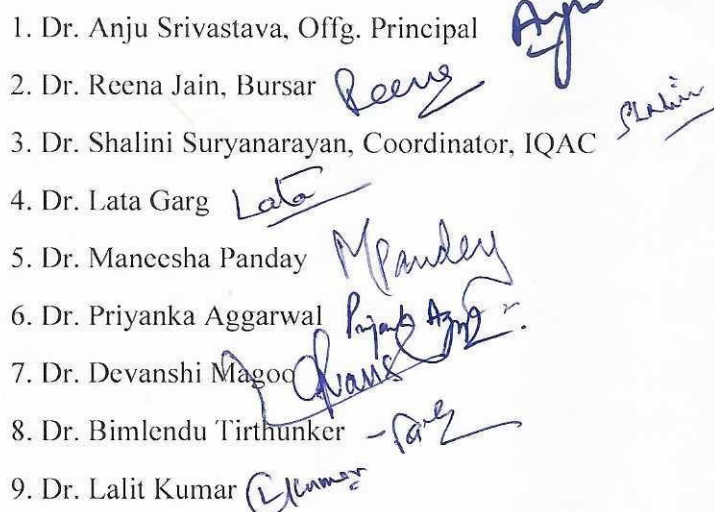 1. Dr. Anju Srivastava, Offg. Principal
2. Dr. Reena Jain, Bursar Reena
3. Dr. Shalini Suryanarayan, Coordinator, IQAC Shalini
4. Dr. Lata Garg Lata
5. Dr. Maneesha Panday MPandey
6. Dr. Priyanka Aggarwal
7. Dr. Devanshi Magoo
8. Dr. Bimlendu Tirthunker
9. Dr. Lalit Kumar LKumar